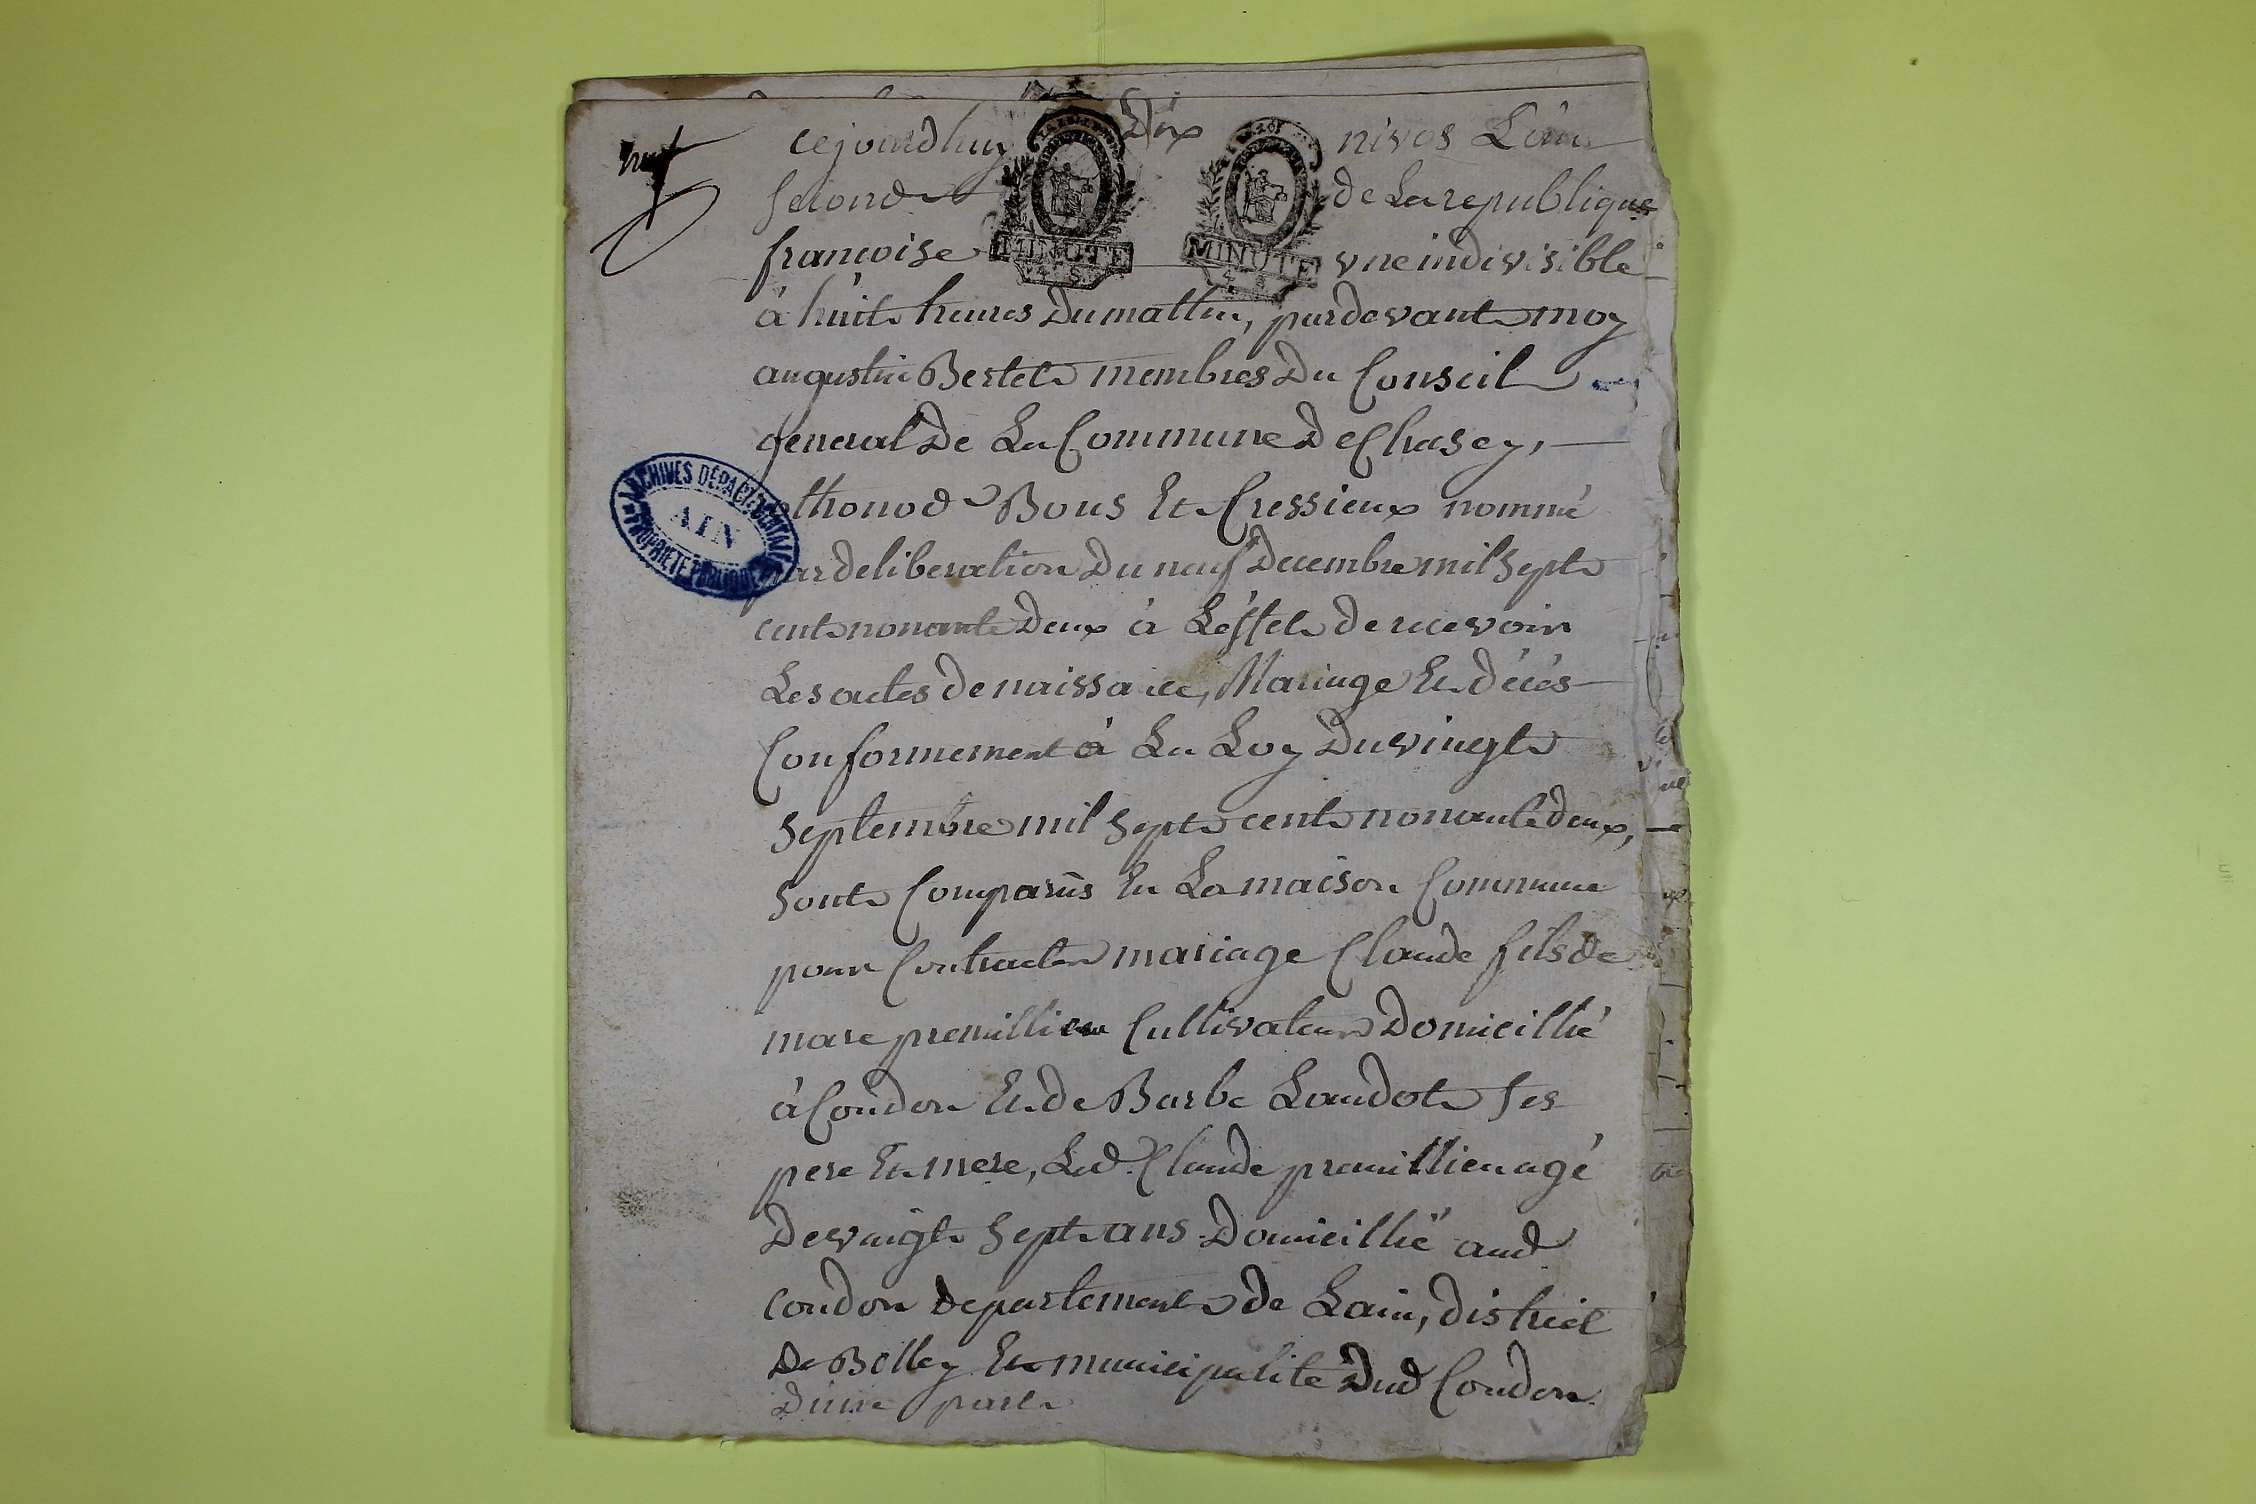 Dix
cejourdhuy nivos Lan
second de La republique
francoise une indivisible
à huit heures du matin, pardevant moy
augustin Bertet membres du Conseil
general de La Commune de Chasey,
othonod Bous Et Cressieux nommé
par deliberation du neuf Decembre mil sept
cent nonante Deux à L'éffet de recevoir
Les actes de naissance, Mariage Et décés
Conformement à La Loy du vingt
septembre mil sept cent nonante deux,
sont Comparus En La maison Commune
pour Contracter mariage Claude fils de
marc premillieu Cultivateur Domicillié
à Condon Et de Barbe Landot ses
pere Et mere, Led. Claude premillieu agé
De vingt sept ans Domicillié aud
Condon departement de Lain, district
De Belley Et municipalité Dud Condon
Dune part
MINUTE
4 S
MINUTE
4 S
ARCHIVES DÉPARTEMENTALES
AIN
PROPRIÉTÉ PUBLIQUE